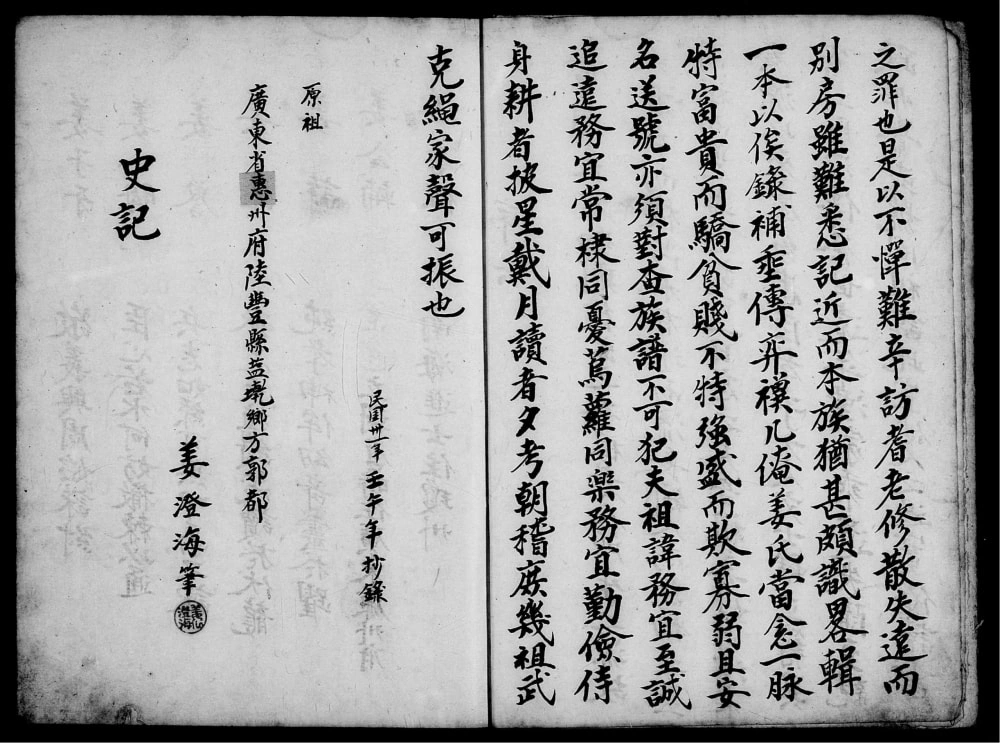 之罪也是以不憚難辛訪耆老修散失遠而
別房雖難悉記近而本族猶甚頗識畧輯
一本以俟錄補垂傳弈禩凡俺姜氏當念一脉
特富貴而驕貧賤不特強盛而欺寡弱且安
名送號亦須對查族譜不可犯夫祖諱務宜至誠
追遠務宜常棣同憂蔦蘿同樂務宜勤儉侍
身耕者披星戴月讀者夕考朝稽庶幾祖武
克繩家聲可振也
民国卅一年壬午年抄錄
原祖
廣東省惠州府陸豐縣藍墘鄉方郭都
姜澄海筆
史記